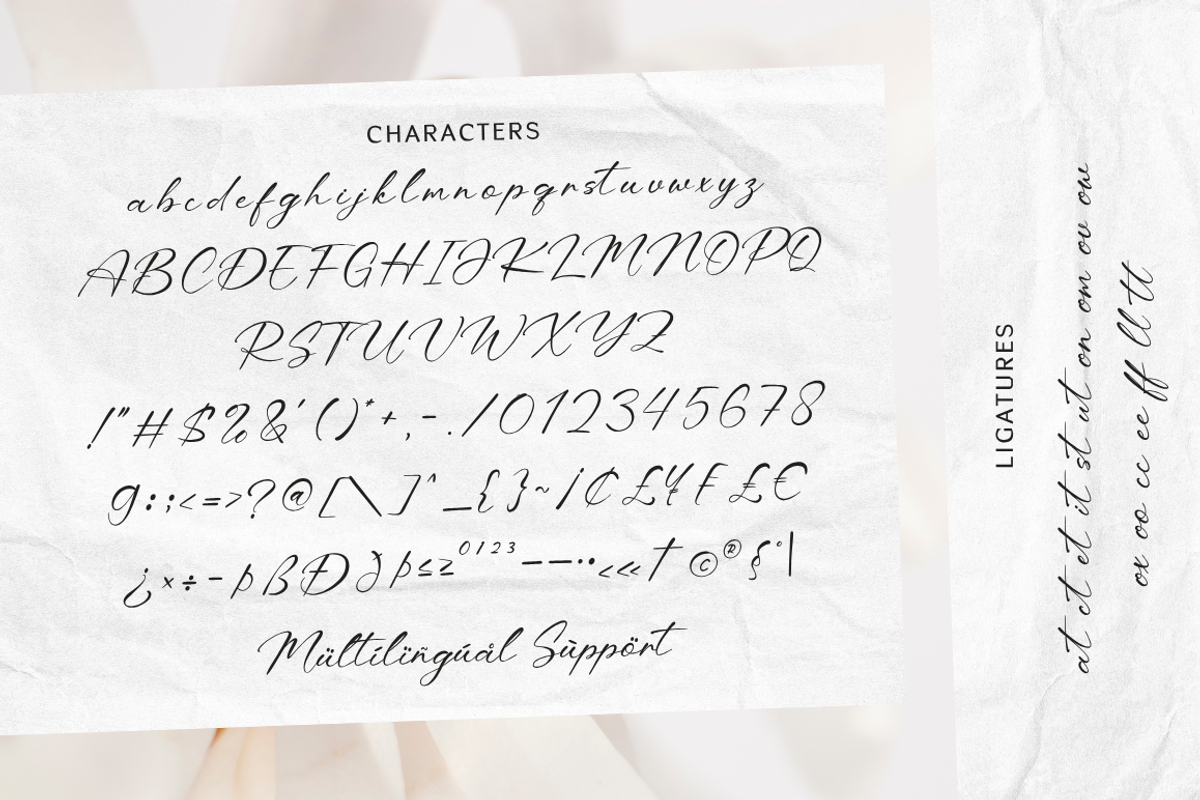 CHARACTERS
a b c d e f g h i j k l m n o p q r s t u v w x y z
A B C D E F G H I J K L M N O P Q
R S T U V W X Y Z
! " # $ % & ' ( ) * + , - . / 0 1 2 3 4 5 6 7 8
9 : ; < = > ? @ [ \ ] ^ _ { } ~ ¡ ¢ £ ¥ ƒ £ €
¿ × ÷ - þ ß Đ þ ≤ ≥ 0 1 2 3 — — · · < « † © ® { ° |
Mültílïñgúål Sùppört
LIGATURES
at ct et it st ut on om ov ow
ox oo cc ee ff ll tt